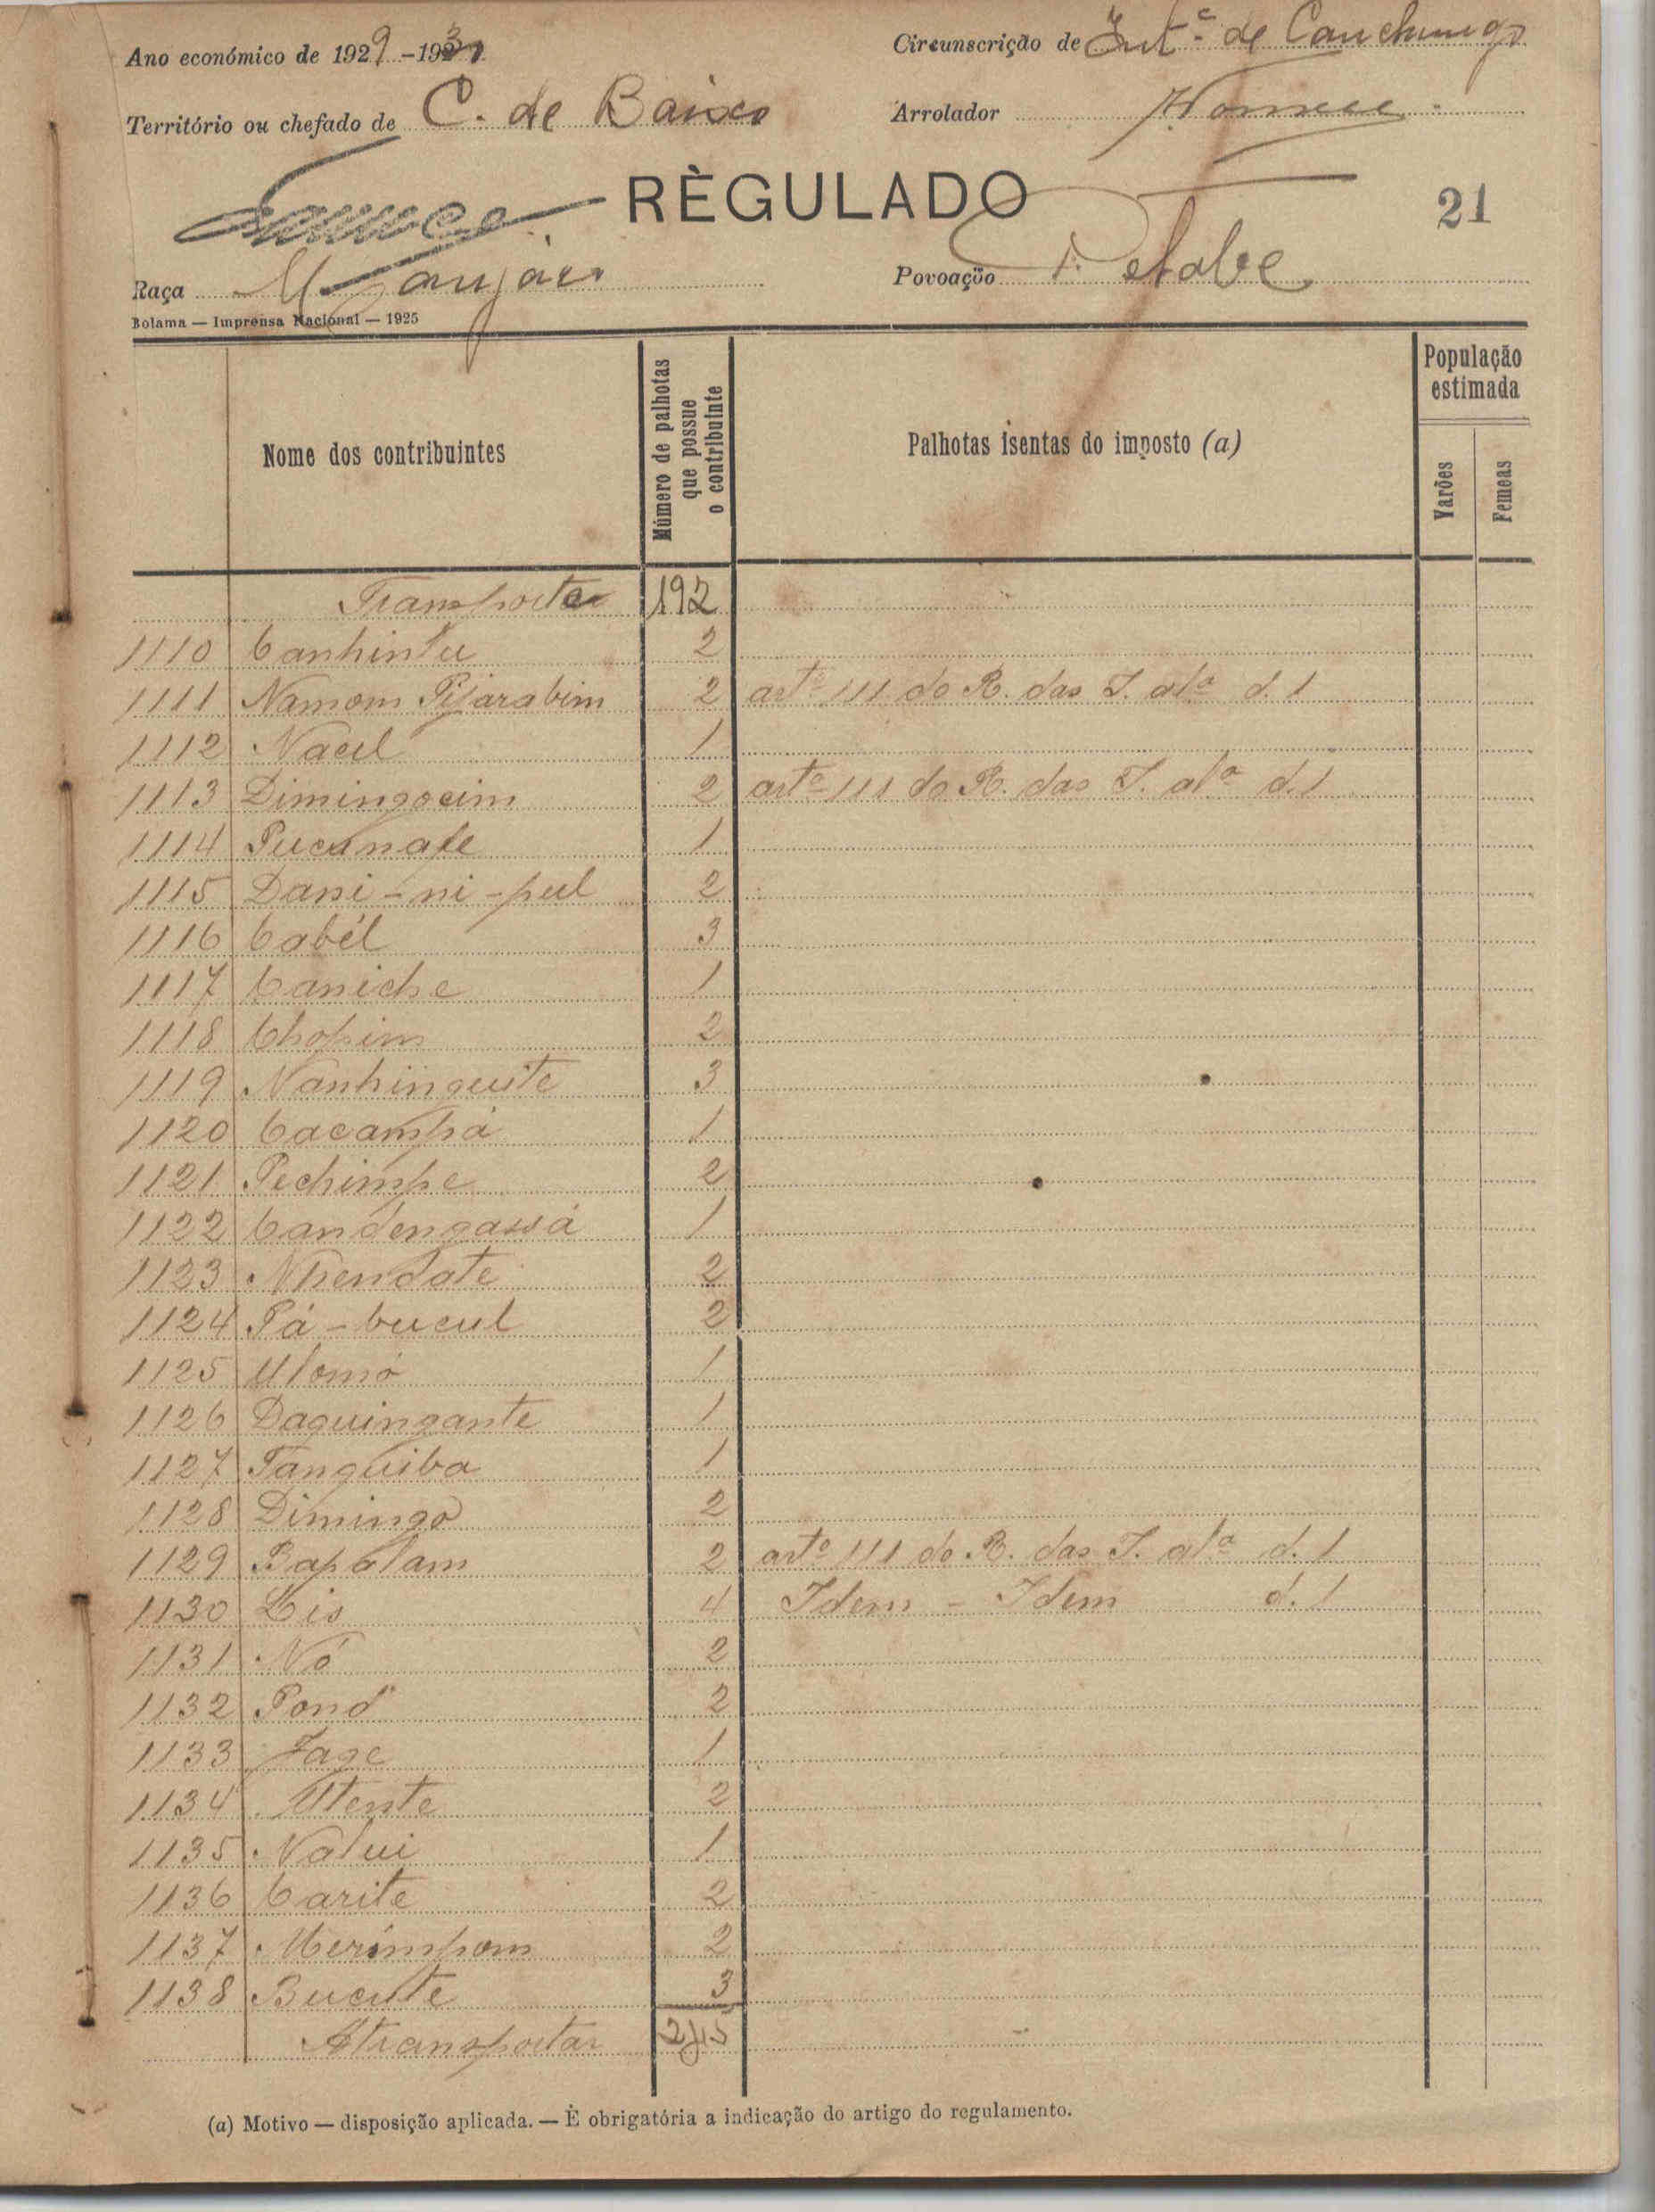 Ano económico de 1929-1930
Circunscrição de Int.ª de Canchungo
Território ou chefado de C. de Baixo
Arrolador
RÈGULADO
21
Raça Manjaca
Povoação Petabe
Bolama — Imprensa Nacional — 1925
Nome dos contribuintes
Número de palhotas que possue o contribuinte
Palhotas isentas do imposto (a)
População estimada
Varões
Femeas
Transporte 192
1110 Canhintu 2
1111 Namom Pijarabim 2 artº 111 do R. das I. alª d. 1
1112 Nacul 1
1113 Dimingocim 2 artº 111 do R. das I. alª d. 1
1114 Pucunafe 1
1115 Dani-ni-pul 2
1116 Cabél 3
1117 Caniche 1
1118 Chopim 2
1119 Nanhinguite 3
1120 Cacampá 1
1121 Pechimpe 2
1122 Candengassá 1
1123 Nhendate 2
1124 Pá-bucul 2
1125 Ulomó 1
1126 Daquingante 1
1127 Tanguiba 1
1128 Dimingo 2
1129 Bapatam 2 artº 111 do R. das I. alª d. 1
1130 Lis 4 Idem - Idem d. 1
1131 Nó 2
1132 Pond 2
1133 Jage 1
1134 Utente 2
1135 Natui 1
1136 Carite 2
1137 Merimpom 2
1138 Bucute 3
A transportar 245
(a) Motivo — disposição aplicada. — È obrigatória a indicação do artigo do regulamento.